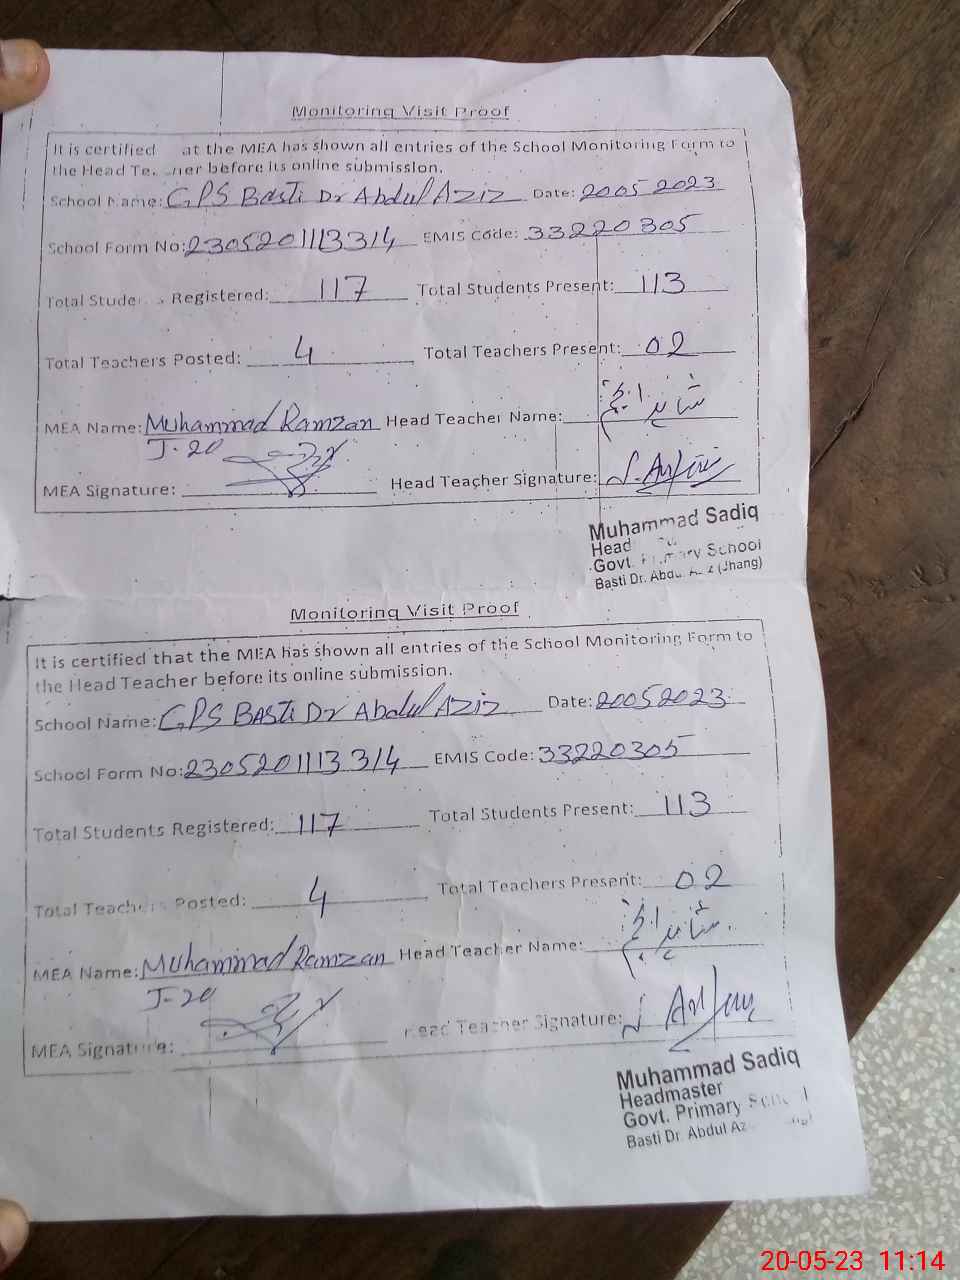 Monitoring Visit Proof
It is certified at the MEA has shown all entries of the School Monitoring Form to
the Head Te ner before its online submission.
School Name: GPS Basti Dr Abdul Aziz Date: 20052023
School Form No: 2305201113314 EMIS Code: 33220305
Total Stude s Registered: 117 Total Students Present: 113
Total Teachers Posted: 4 Total Teachers Present: 02
MEA Name: Muhammad Ramzan Head Teacher Name:
J-20
MEA Signature: Head Teacher Signature:
Muhammad Sadiq
Head
Govt. School
Basti Dr. (Jhang)
Monitoring Visit Proof
It is certified that the MEA has shown all entries of the School Monitoring Form to
the Head Teacher before its online submission.
School Name: GPS Basti Dr Abdul Aziz Date: 20052023
School Form No: 2305201113314 EMIS Code: 33220305
Total Students Registered: 117 Total Students Present: 113
Total Teachers Posted: 4 Total Teachers Present: 02
MEA Name: Muhammad Ramzan Head Teacher Name:
J-20
MEA Signature: Head Teacher Signature:
Muhammad Sadiq
Headmaster
Govt. Primary
Basti Dr. Abdul Az
20-05-23 11:14